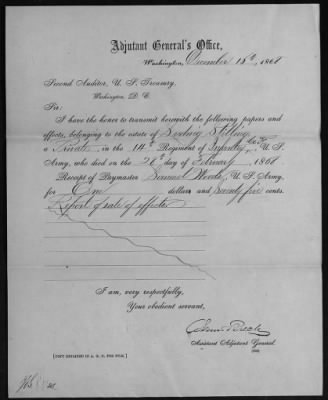 Adjutant General's Office,
Washington, December 18th, 1861
Second Auditor, U. S. Treasury,
Washington, D. C.
Sir:
I have the honor to transmit herewith the following papers and
effects, belonging to the estate of Ludwig
a Private, in the 14th Regiment of Infantry, U. S.
Army, who died on the 26th day of February, 1861
Receipt of Paymaster Samuel Woods, U. S. Army,
for One dollars and seventy five cents.
Report of sale of effects
I am, very respectfully,
Your obedient servant,
Assistant Adjutant General.